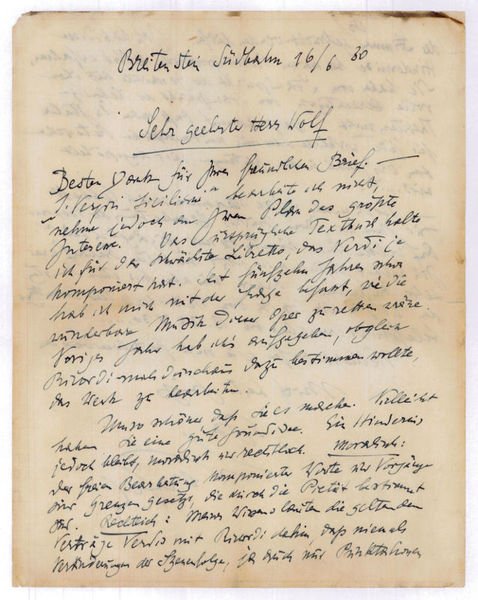 Breitenstein Südbahn 16/6 30
Sehr geehrter Herr Wolf
Besten Dank für Ihren freundlichen Brief. —
"I Vespri Siciliani" bearbeite ich nicht,
nehme jedoch an Ihrem Plan das größte
Interesse. Das ursprüngliche Textbuch halte
ich für das schwächste Libretto, das Verdi je
komponiert hat. Seit fünfzehn Jahren schon
hab ich mich mit der Frage befasst, wie die
wunderbare Musik dieser Oper zu retten wäre.
Voriges Jahr hab ich's aufgegeben, obgleich
Ricordi mich durchaus dazu bestimmen wollte,
das Werk zu bearbeiten.
Umso schöner daß Sie es machen. Vielleicht
haben Sie eine gute Grundidee. Ein Hindernis
jedoch bleibt, moralisch wie rechtlich. Moralisch:
Der freien Bearbeitung komponierter Worte wie Vorgänge
sind Grenzen gesetzt, die durch die Pietät bestimmt
sind. Rechtlich: Meines Wissens lauten die geltenden
Verträge Verdis mit Ricordi dahin, daß niemals
Veränderungen der Szenenfolge, ja auch nur